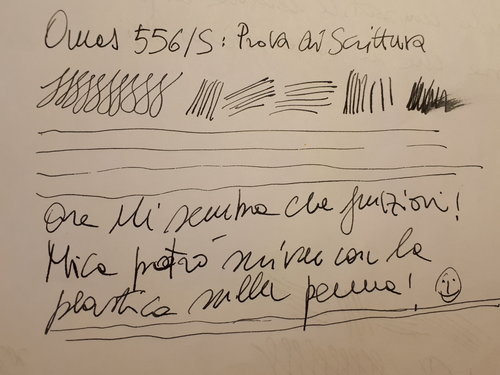 Omas 556/S: Prova di Scrittura
Ora mi sembra che funzioni!
Mica potrò scrivere con la
plastica sulla penna!